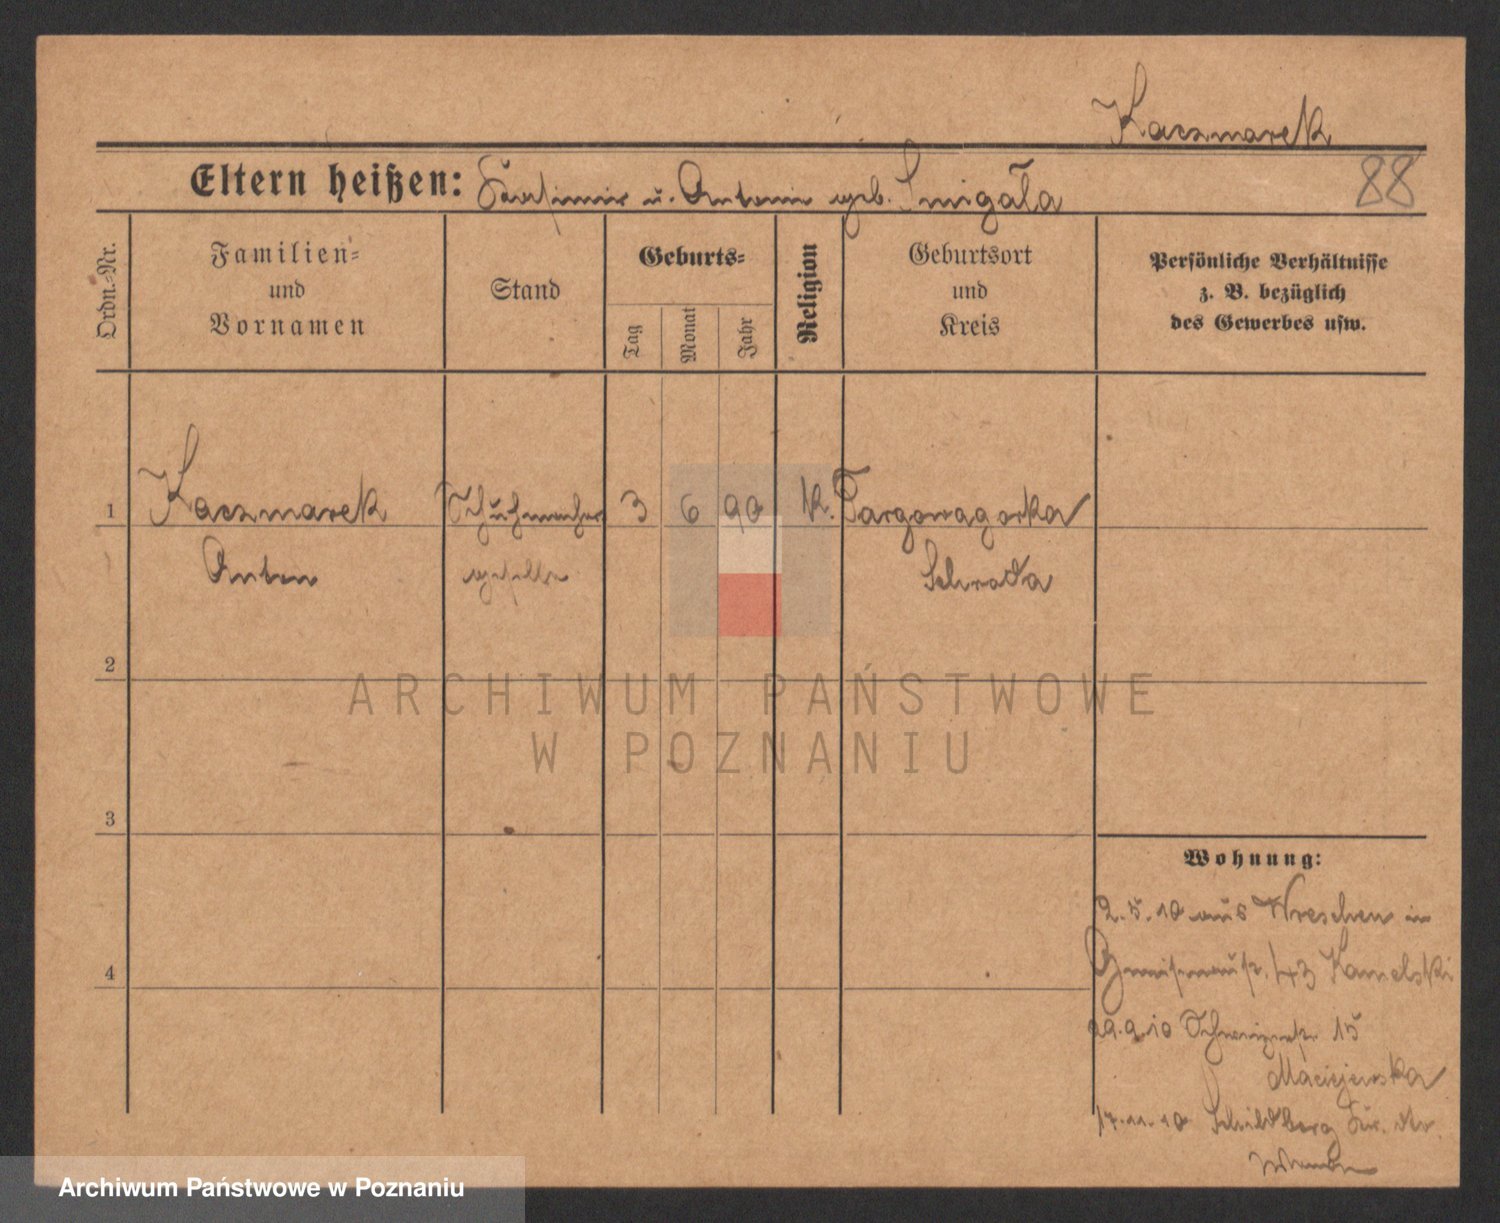 Kaczmarek
88
Eltern heißen: Kasimir u. Antonie geb. Smigała
Ordn.-Nr.
Familien- und Vornamen
Stand
Geburts-
Tag
Monat
Jahr
Religion
Geburtsort und Kreis
Persönliche Verhältnisse
z. B. bezüglich
des Gewerbes usw.
1 Kaczmarek Schuhmacher 3 6 90 k. Targowagorka
Anton geselle Schroda
2
ARCHIWUM PAŃSTWOWE
W POZNANIU
3
Wohnung:
2.5.10 aus Wreschen in
4
Gneisenaustr. 43 Kamelski
29.9.10 15
Maciejewska
17.11.10 Schildberg
Archiwum Państwowe w Poznaniu